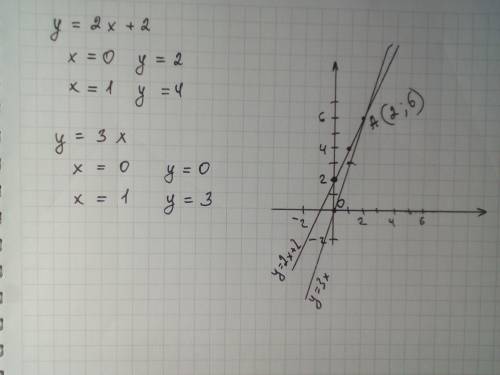 y = 2x + 2
x = 0 y = 2
x = 1 y = 4
y = 3x
x = 0 y = 0
x = 1 y = 3
6
A(2;6)
4
2
0
-2 2 4 6
-2
y=2x+2
y=3x